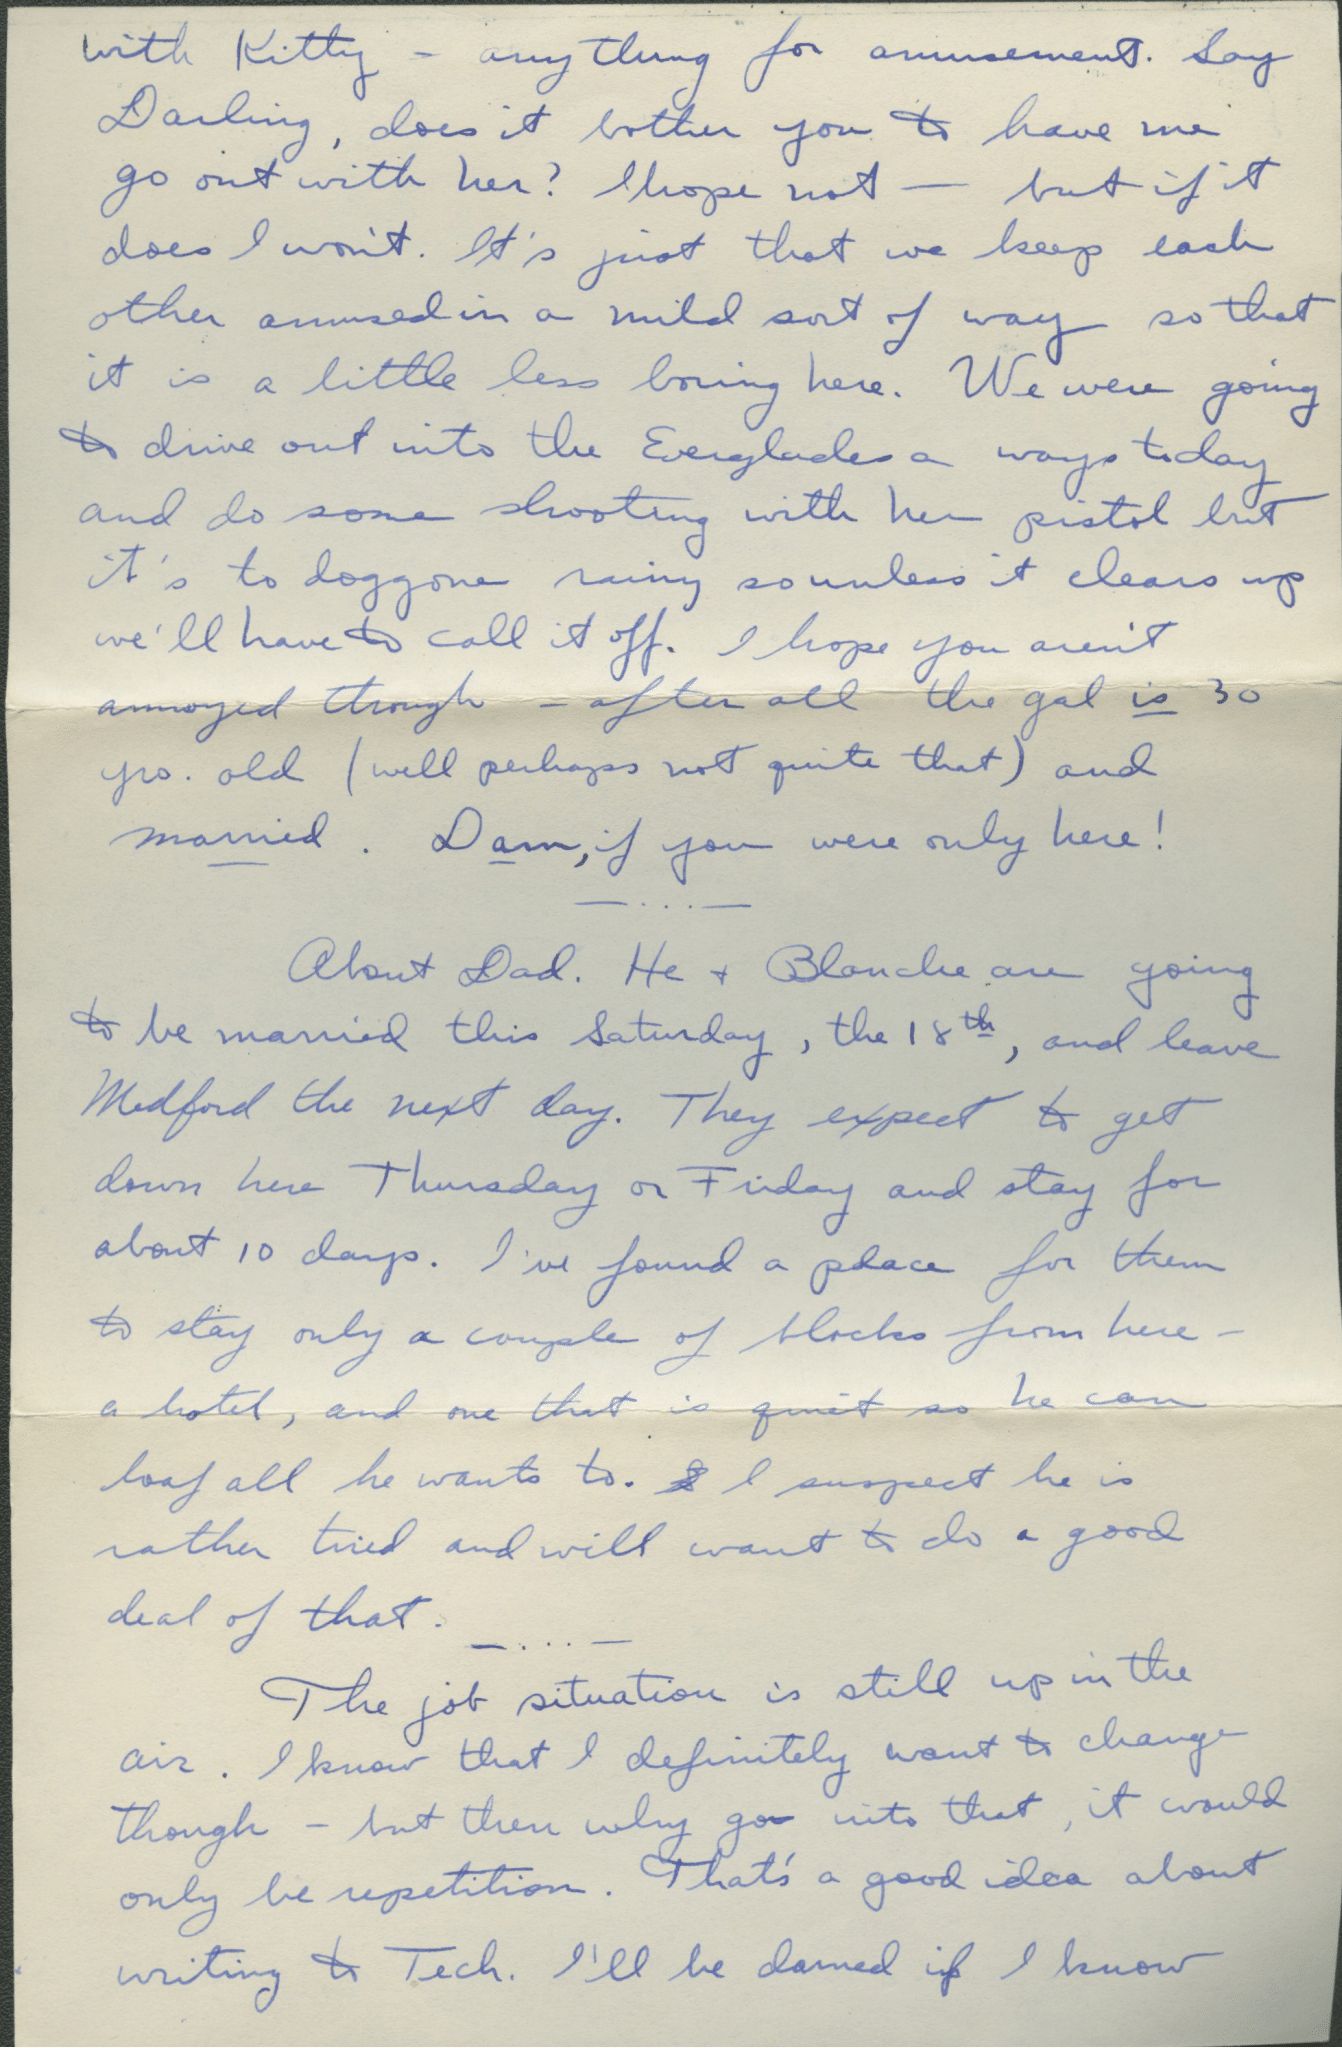 with Kitty – anything for amusement. Say
Darling, does it bother you to have me
go out with her? I hope not — but if it
does I won't. It's just that we keep each
other amused in a mild sort of way so that
it is a little less boring here. We were going
to drive out into the Everglades a ways today
and do some shooting with her pistol but
it's to doggone rainy so unless it clears up
we'll have to call it off. I hope you aren't
annoyed though – after all the gal is 30
yrs. old (well perhaps not quite that) and
married. Dam, if you were only here!
— . . . —
About Dad. He + Blanche are going
to be married this Saturday, the 18th, and leave
Medford the next day. They expect to get
down here Thursday or Friday and stay for
about 10 days. I've found a place for them
to stay only a couple of blocks from here –
a hotel, and one that is quiet so he can
loaf all he wants to. I suspect he is
rather tried and will want to do a good
deal of that.
— . . . —
The job situation is still up in the
air. I know that I definitely want to change
though – but then why go into that, it would
only be repetition. That's a good idea about
writing to Tech. I'll be damed if I know